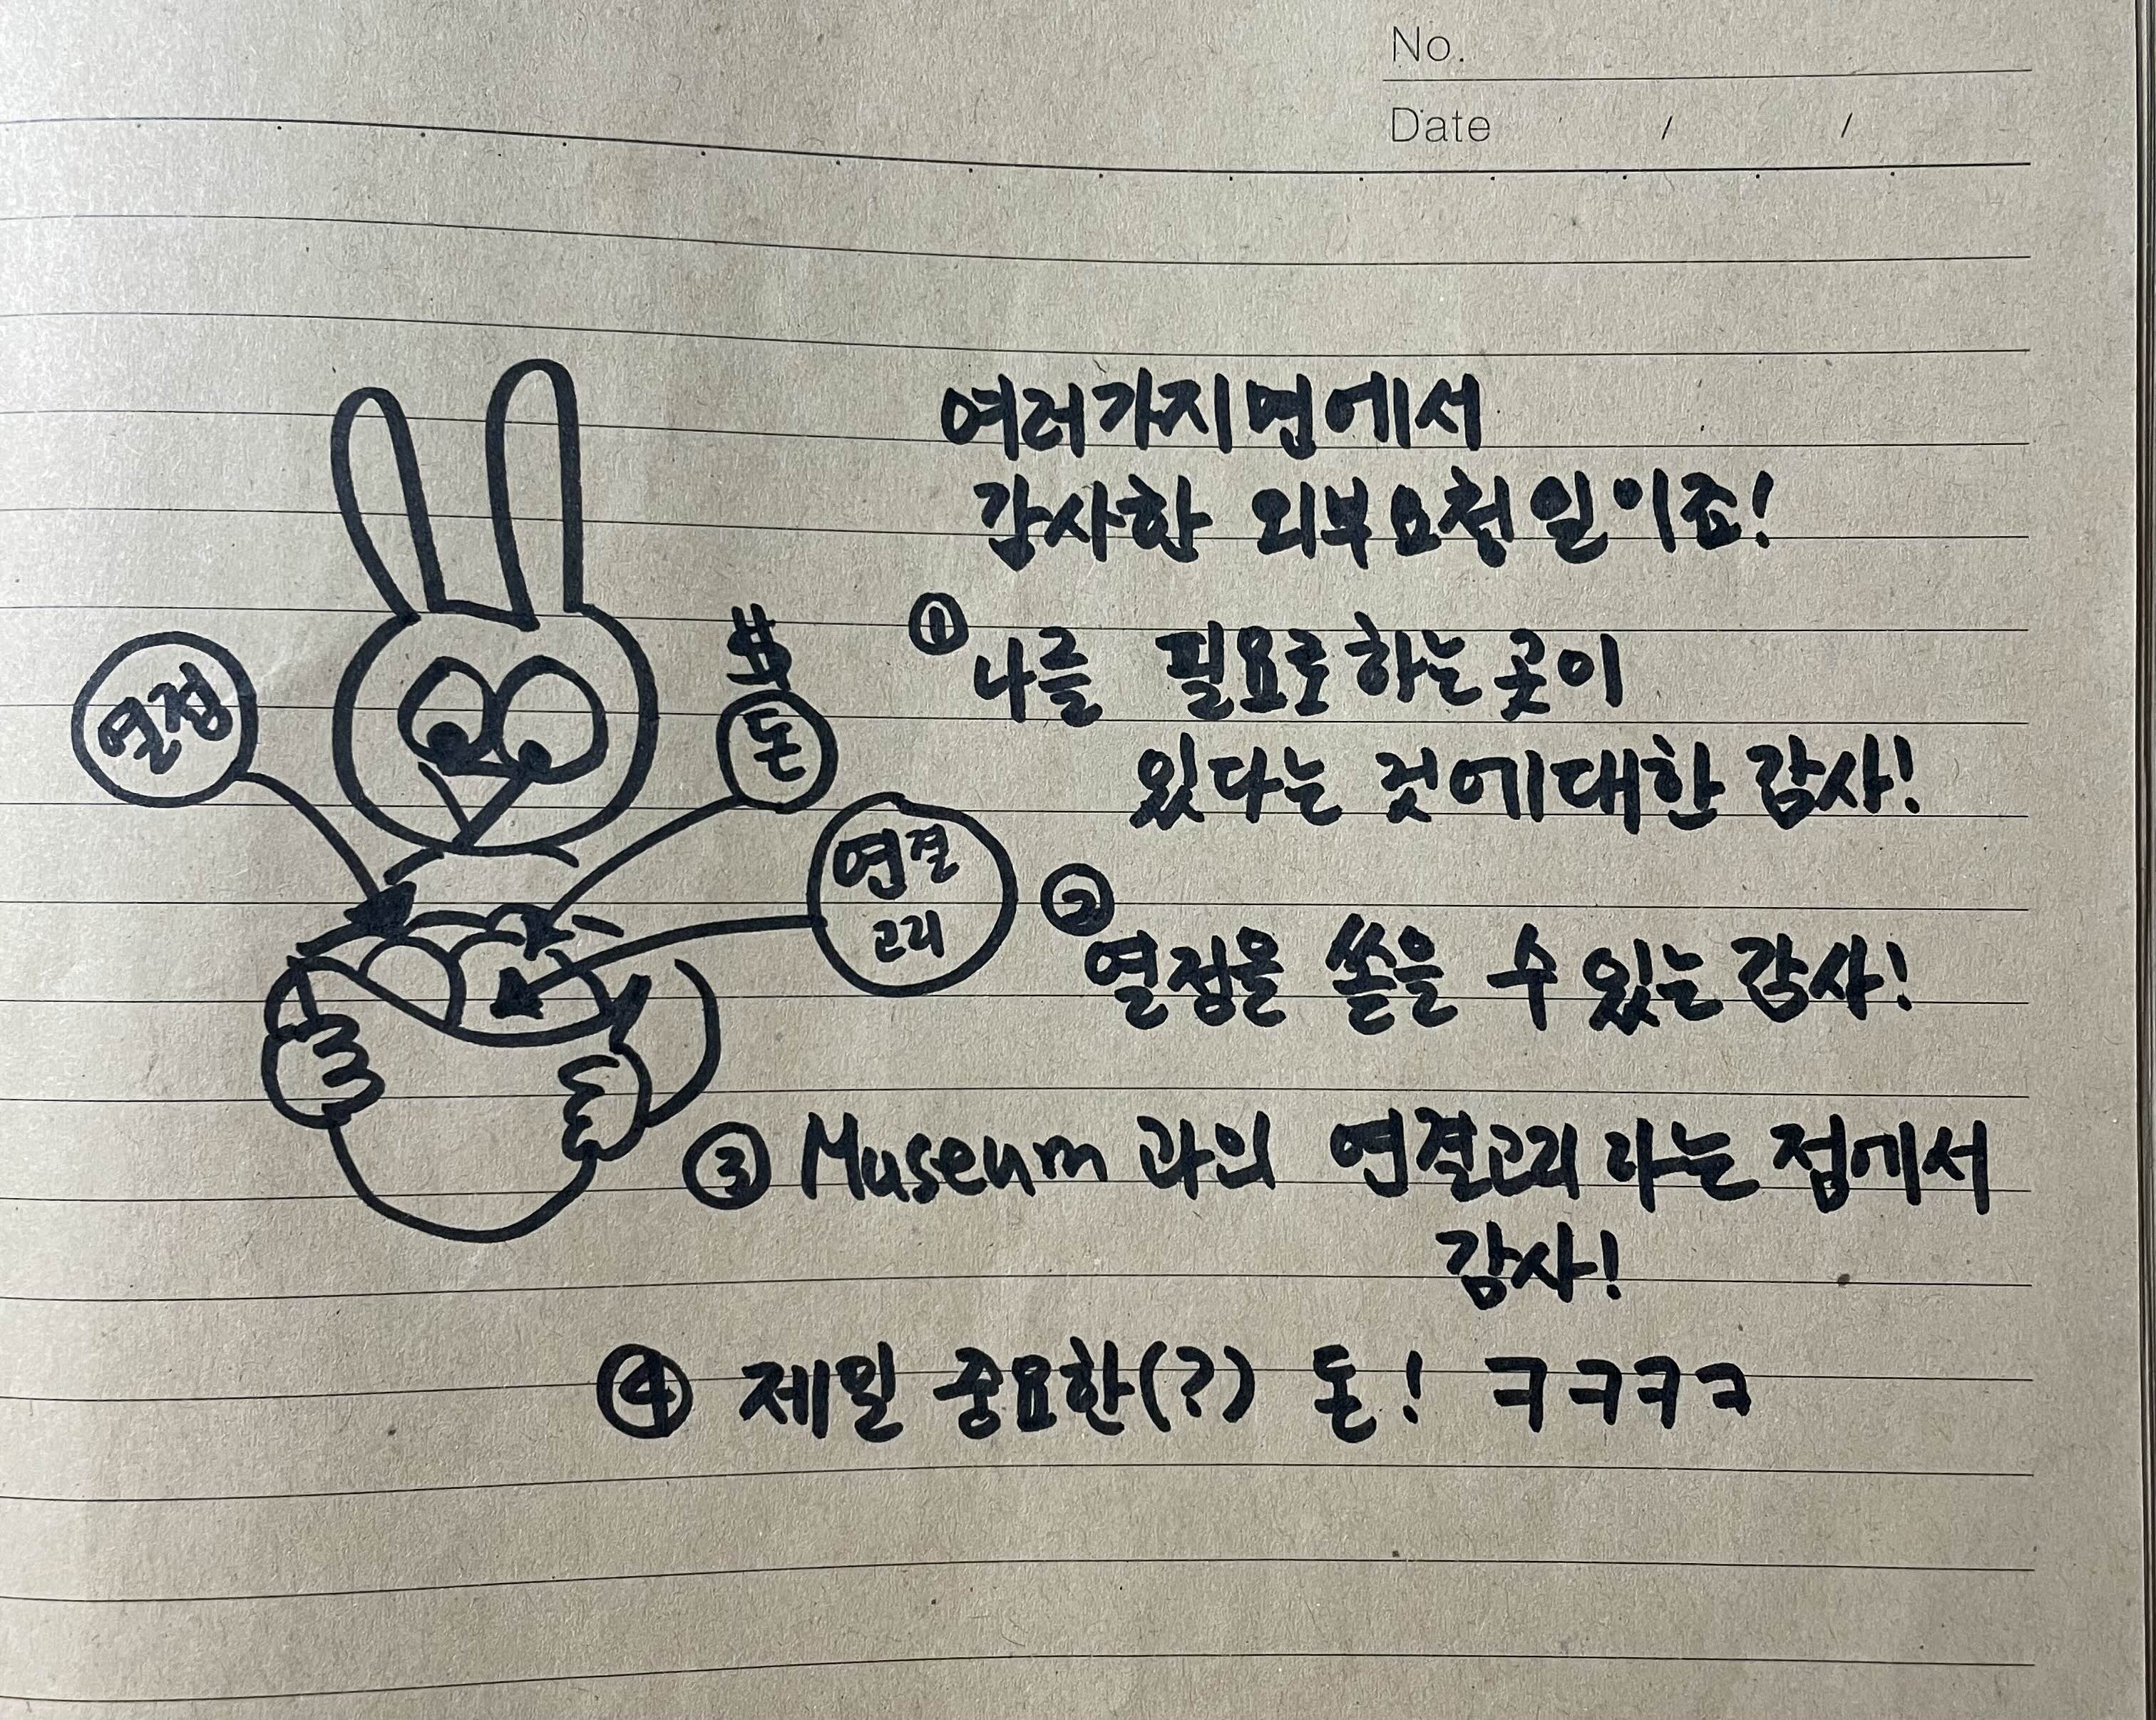 No.
Date / /
여러가지면에서
감사한 외부요청일이죠!
① 나를 필요로하는곳이
있다는 것에대한 감사!
② 열정을 쏟을 수 있는 감사!
③ Museum 과의 연결고리라는 점에서
감사!
④ 제일 중요한(?) 돈! ㅋㅋㅋㅋ
열정
$
돈
연결
고리